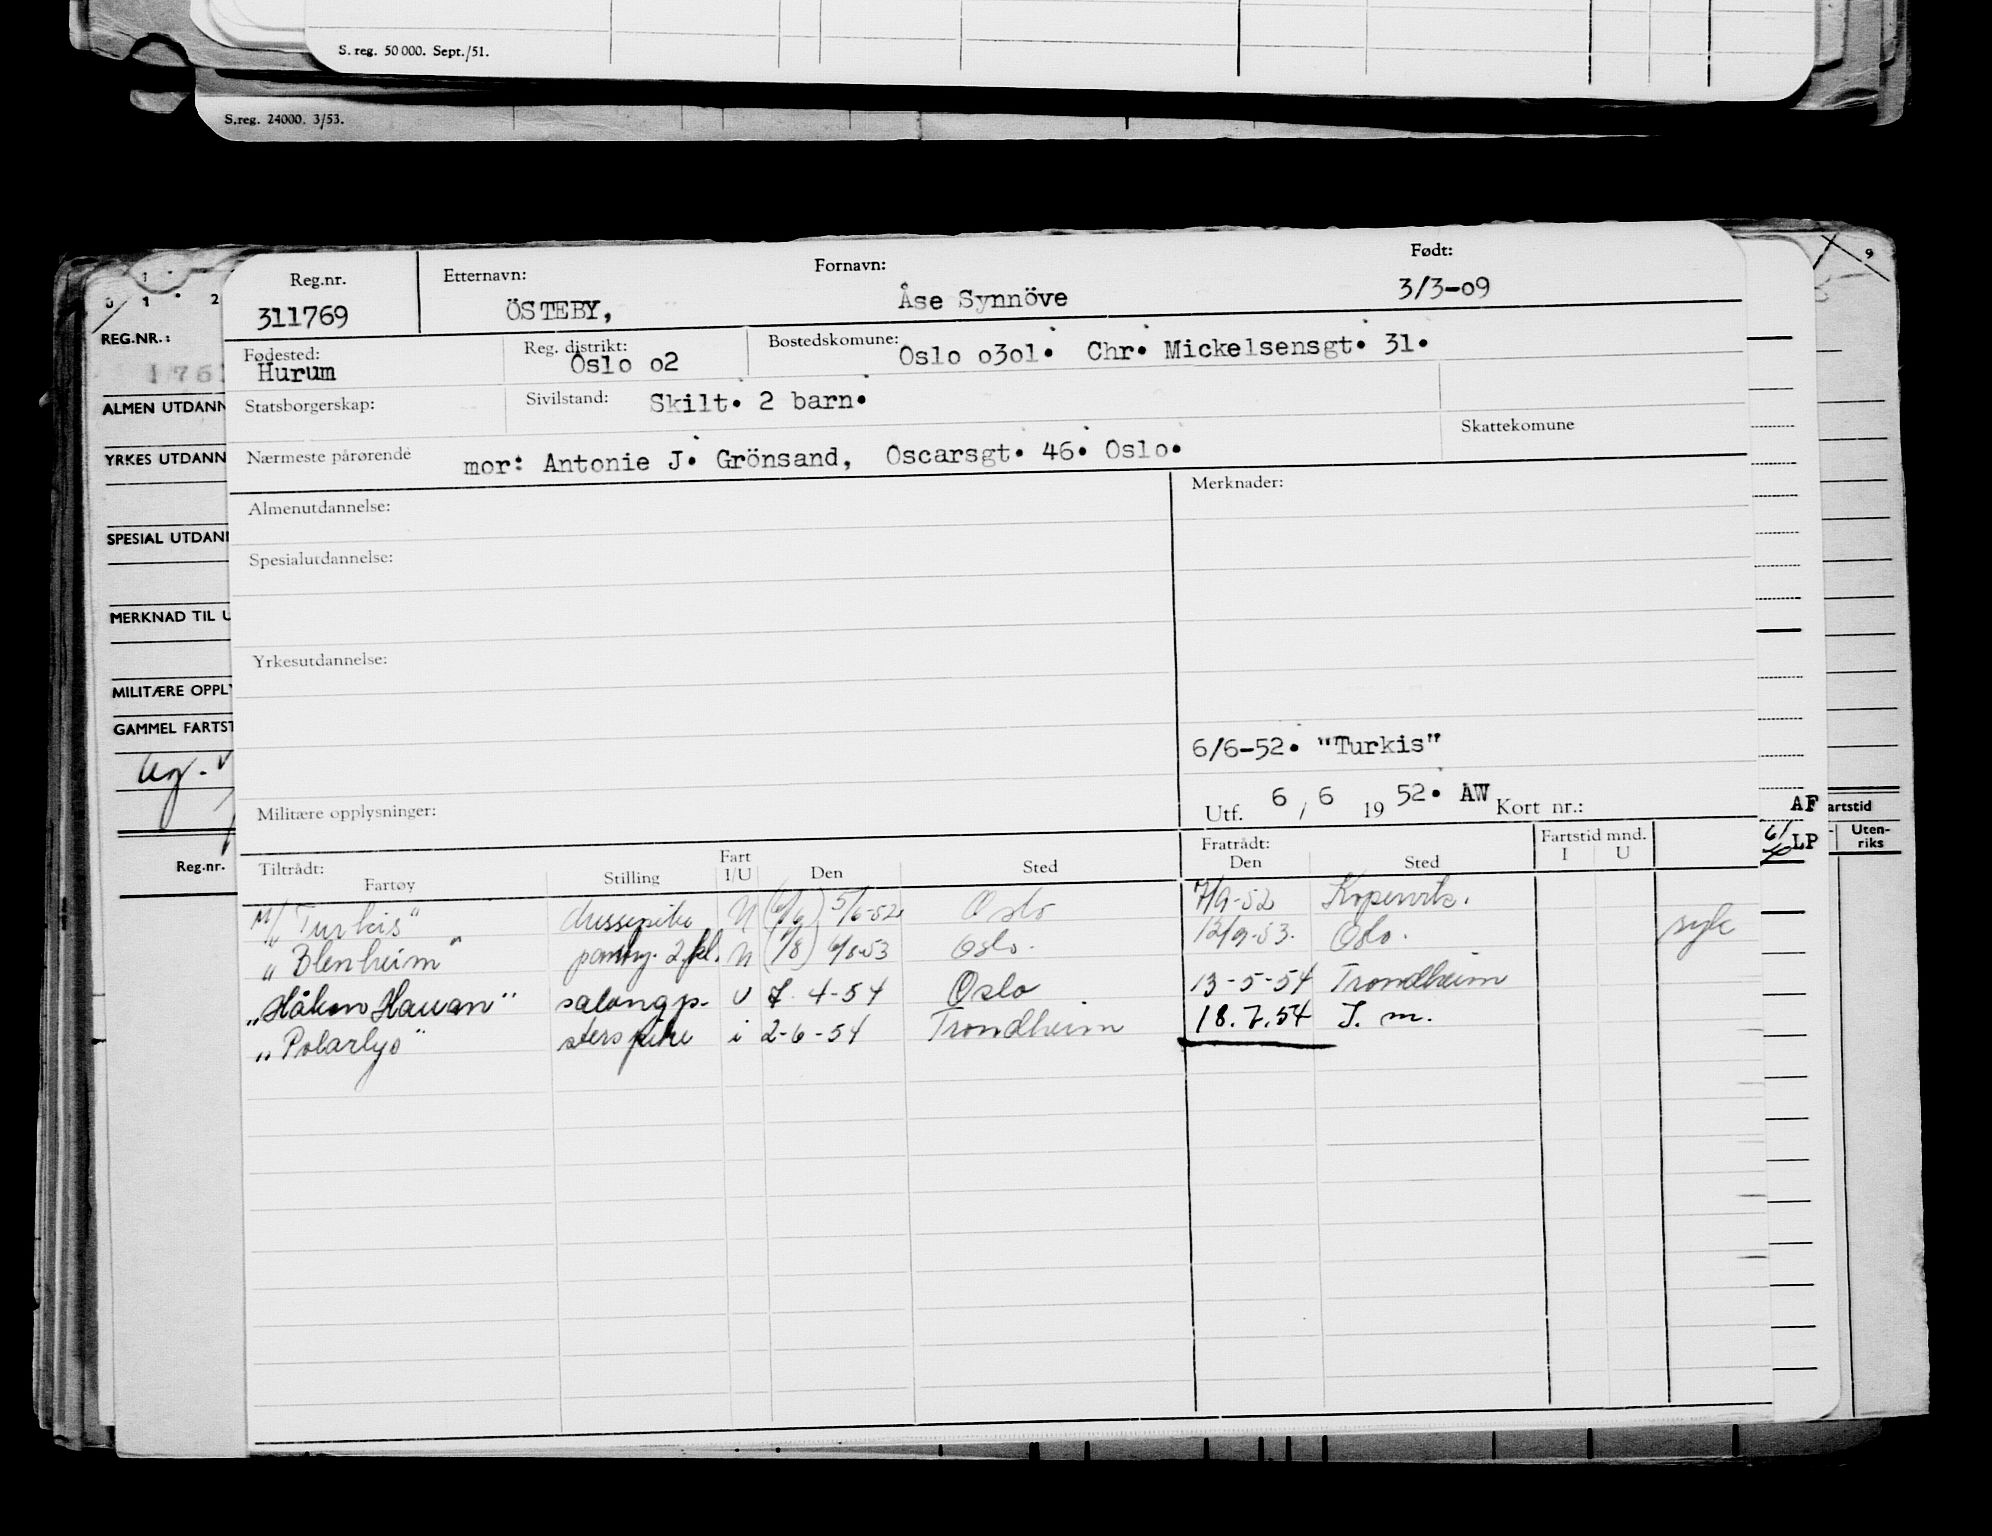 S. reg. 50 000. Sept./51.
S.reg. 24000. 3/53.
Reg.nr. Etternavn: Fornavn: Født:
311769 ÖSTEBY, Åse Synnöve 3/3-09
Fødested: Reg. distrikt: Bostedskomune:
Hurum Oslo o2 Oslo o3o1. Chr. Mickelsensgt. 31.
Statsborgerskap: Sivilstand: Skilt. 2 barn.
Skattekomune
Nærmeste pårørende mor: Antonie J. Grönsand, Oscarsgt. 46. Oslo.
Almenutdannelse: Merknader:
Spesialutdannelse:
Yrkesutdannelse:
6/6-52. "Turkis"
Militære opplysninger: Utf. 6 / 6 19 52. AW Kort nr.:
Tiltrådt: Fratrådt: Fartstid mnd.
Fartøy Stilling Fart I/U Den Sted Den Sted I U
M/ "Turkis" dussepike U (6/6) 5/6-52 Oslo 7/9-52 Kopervik.
"Blenheim" pantry. 2. kl. U 53 Oslo. 12/9-53. Oslo. syk
"Håkon Hauan" salongp. U 7-4-54 Oslo 13-5-54 Trondheim
"Polarlys" sterspike i 2-6-54 Trondheim 18.7.54 S. m.
REG.NR.:
ALMEN UTDANN
YRKES UTDANN
SPESIAL UTDAN
MERKNAD TIL U
MILITÆRE OPPLY
GAMMEL FARTST
Reg.nr.
9
AF
LP
artstid
Uten-
riks